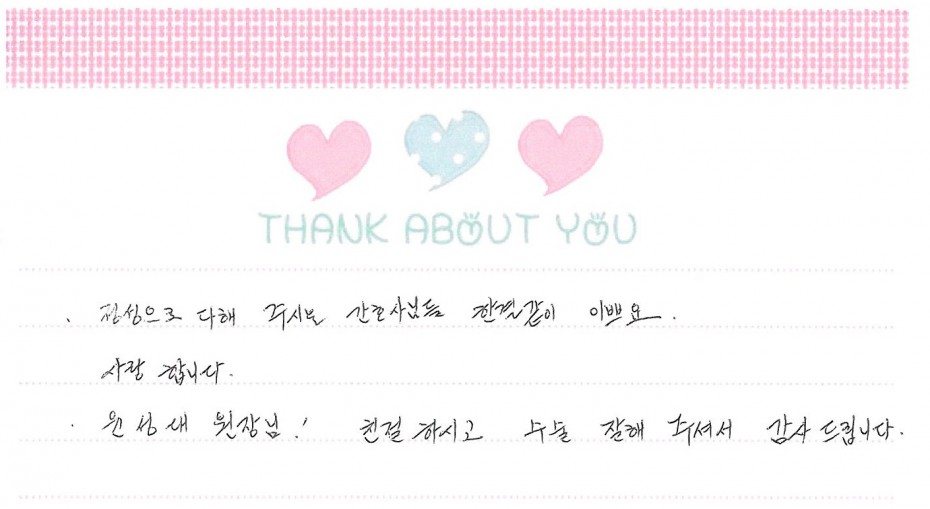 THANK ABOUT YOU
. 정성으로 다해 주시는 간호사님들 한결같이 이쁘요.
사랑 합니다.
. 원성내 원장님! 친절 하시고 수술 잘해 주셔서 감사 드립니다.